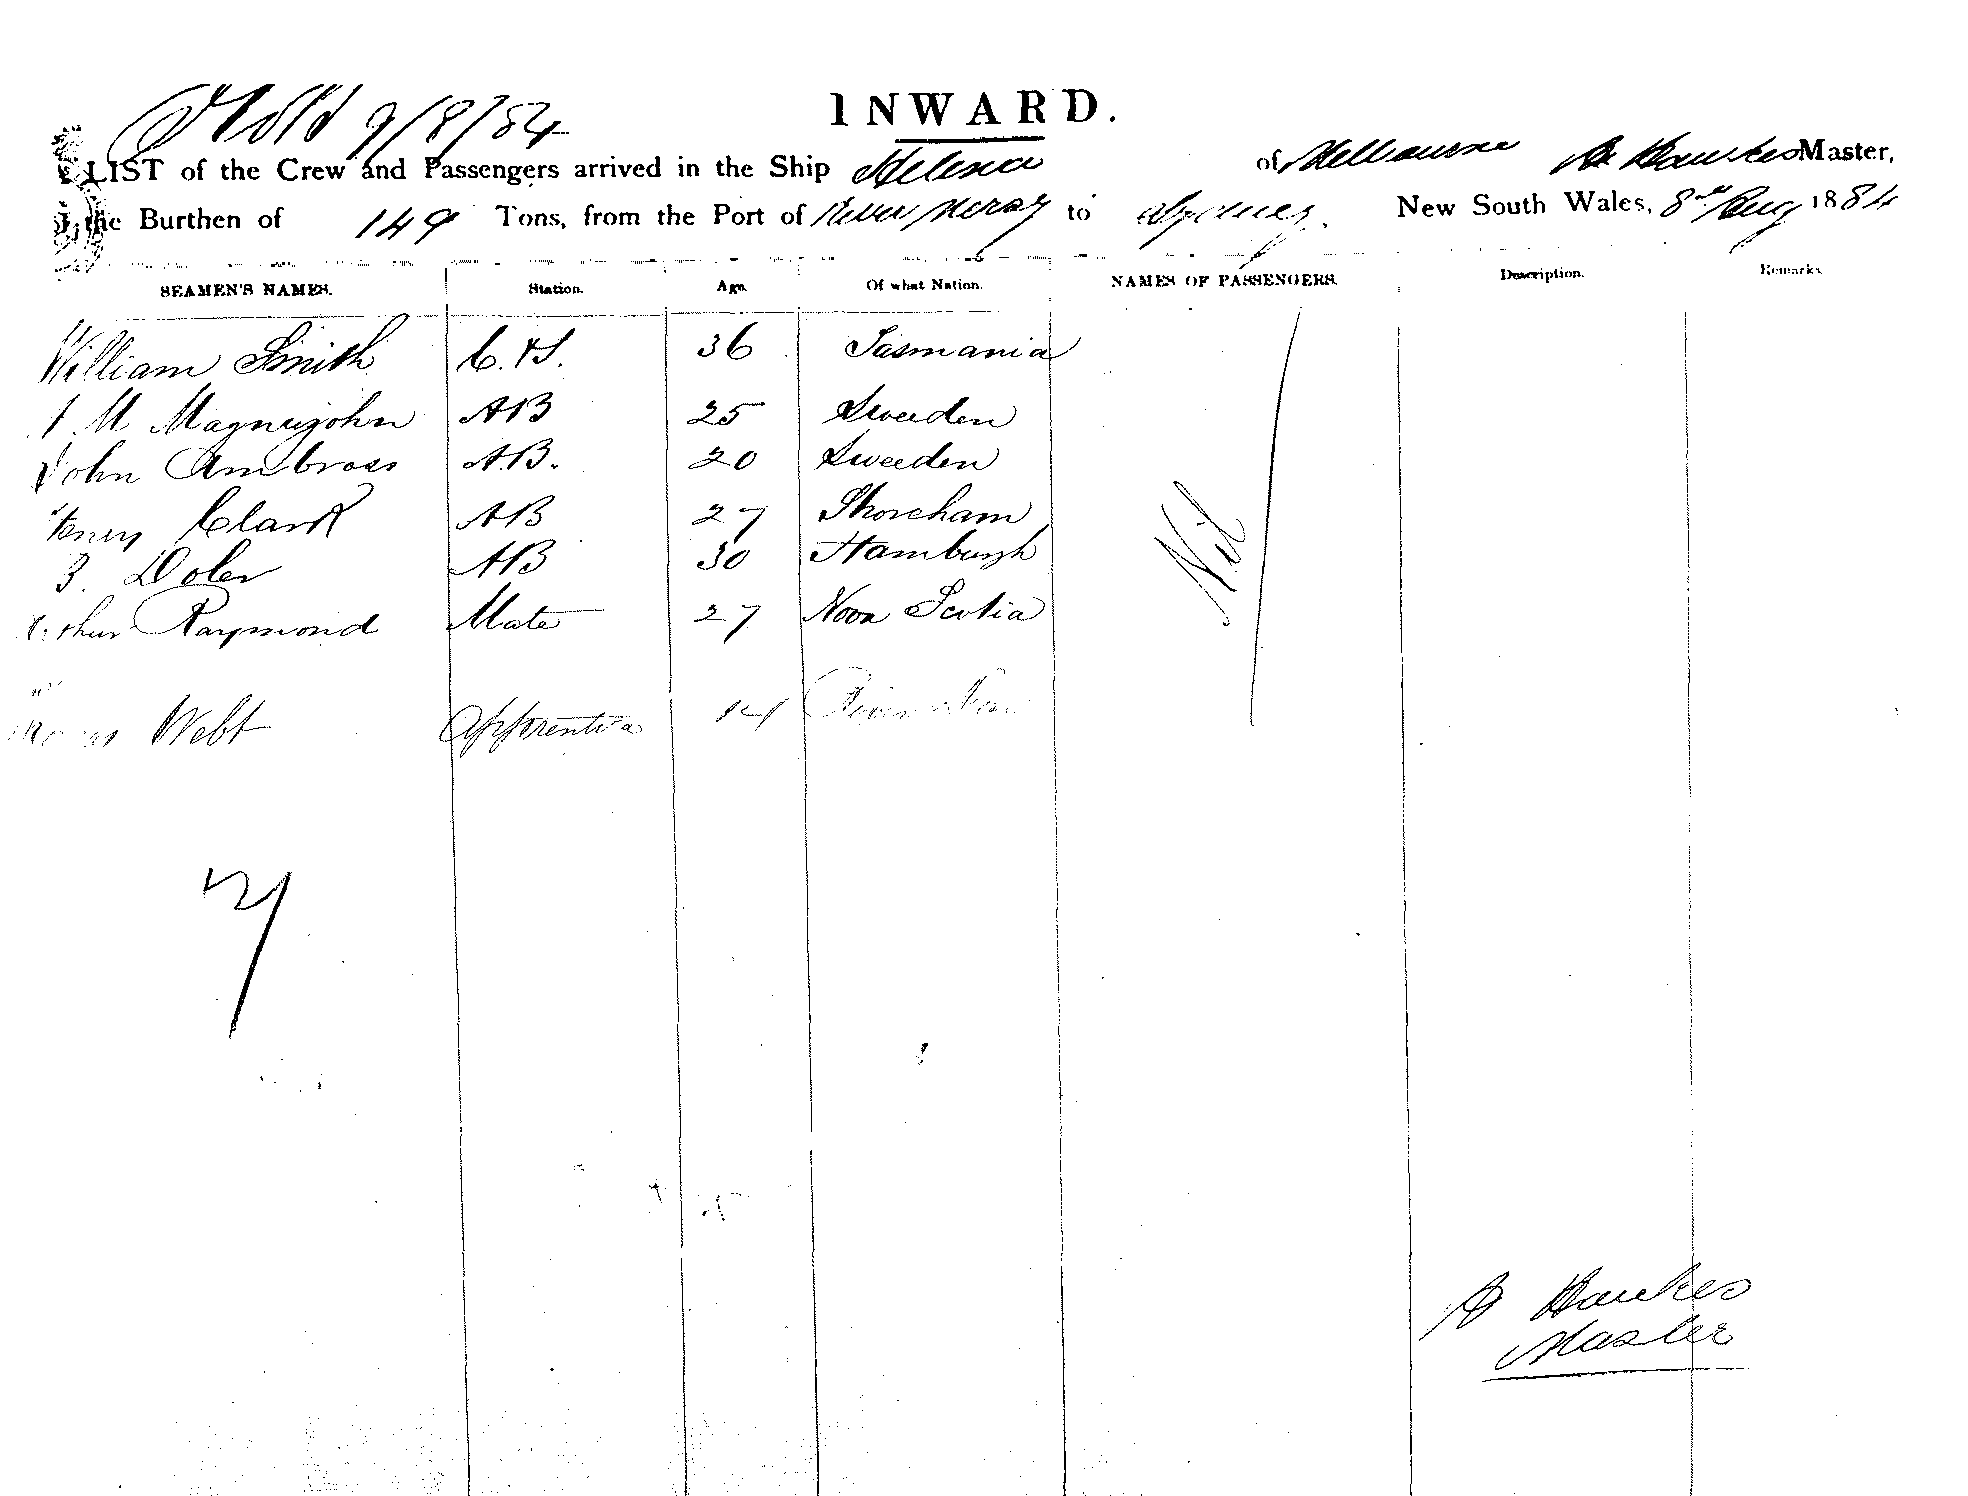 9/8/84
INWARD.
LIST of the Crew and Passengers arrived in the Ship Helena of Melbourne A Hawkes Master,
the Burthen of 149 Tons, from the Port of River Mersey to Sydney. New South Wales, 8th Aug 1884
SEAMEN'S NAMES. Station. Age. Of what Nation. NAMES OF PASSENGERS. Description. Remarks
William Smith C. & S. 36 Tasmania
M Magnusjohn AB 25 Sweeden
John Ambross A.B. 20 Sweeden
Henry Clark AB 27 Shoreham
Doler AB 30 Hamburgh
Arthur Raymond Mate 27 Nova Scotia
Nil
Webb Apprentice 14
7
A Hawkes
Master